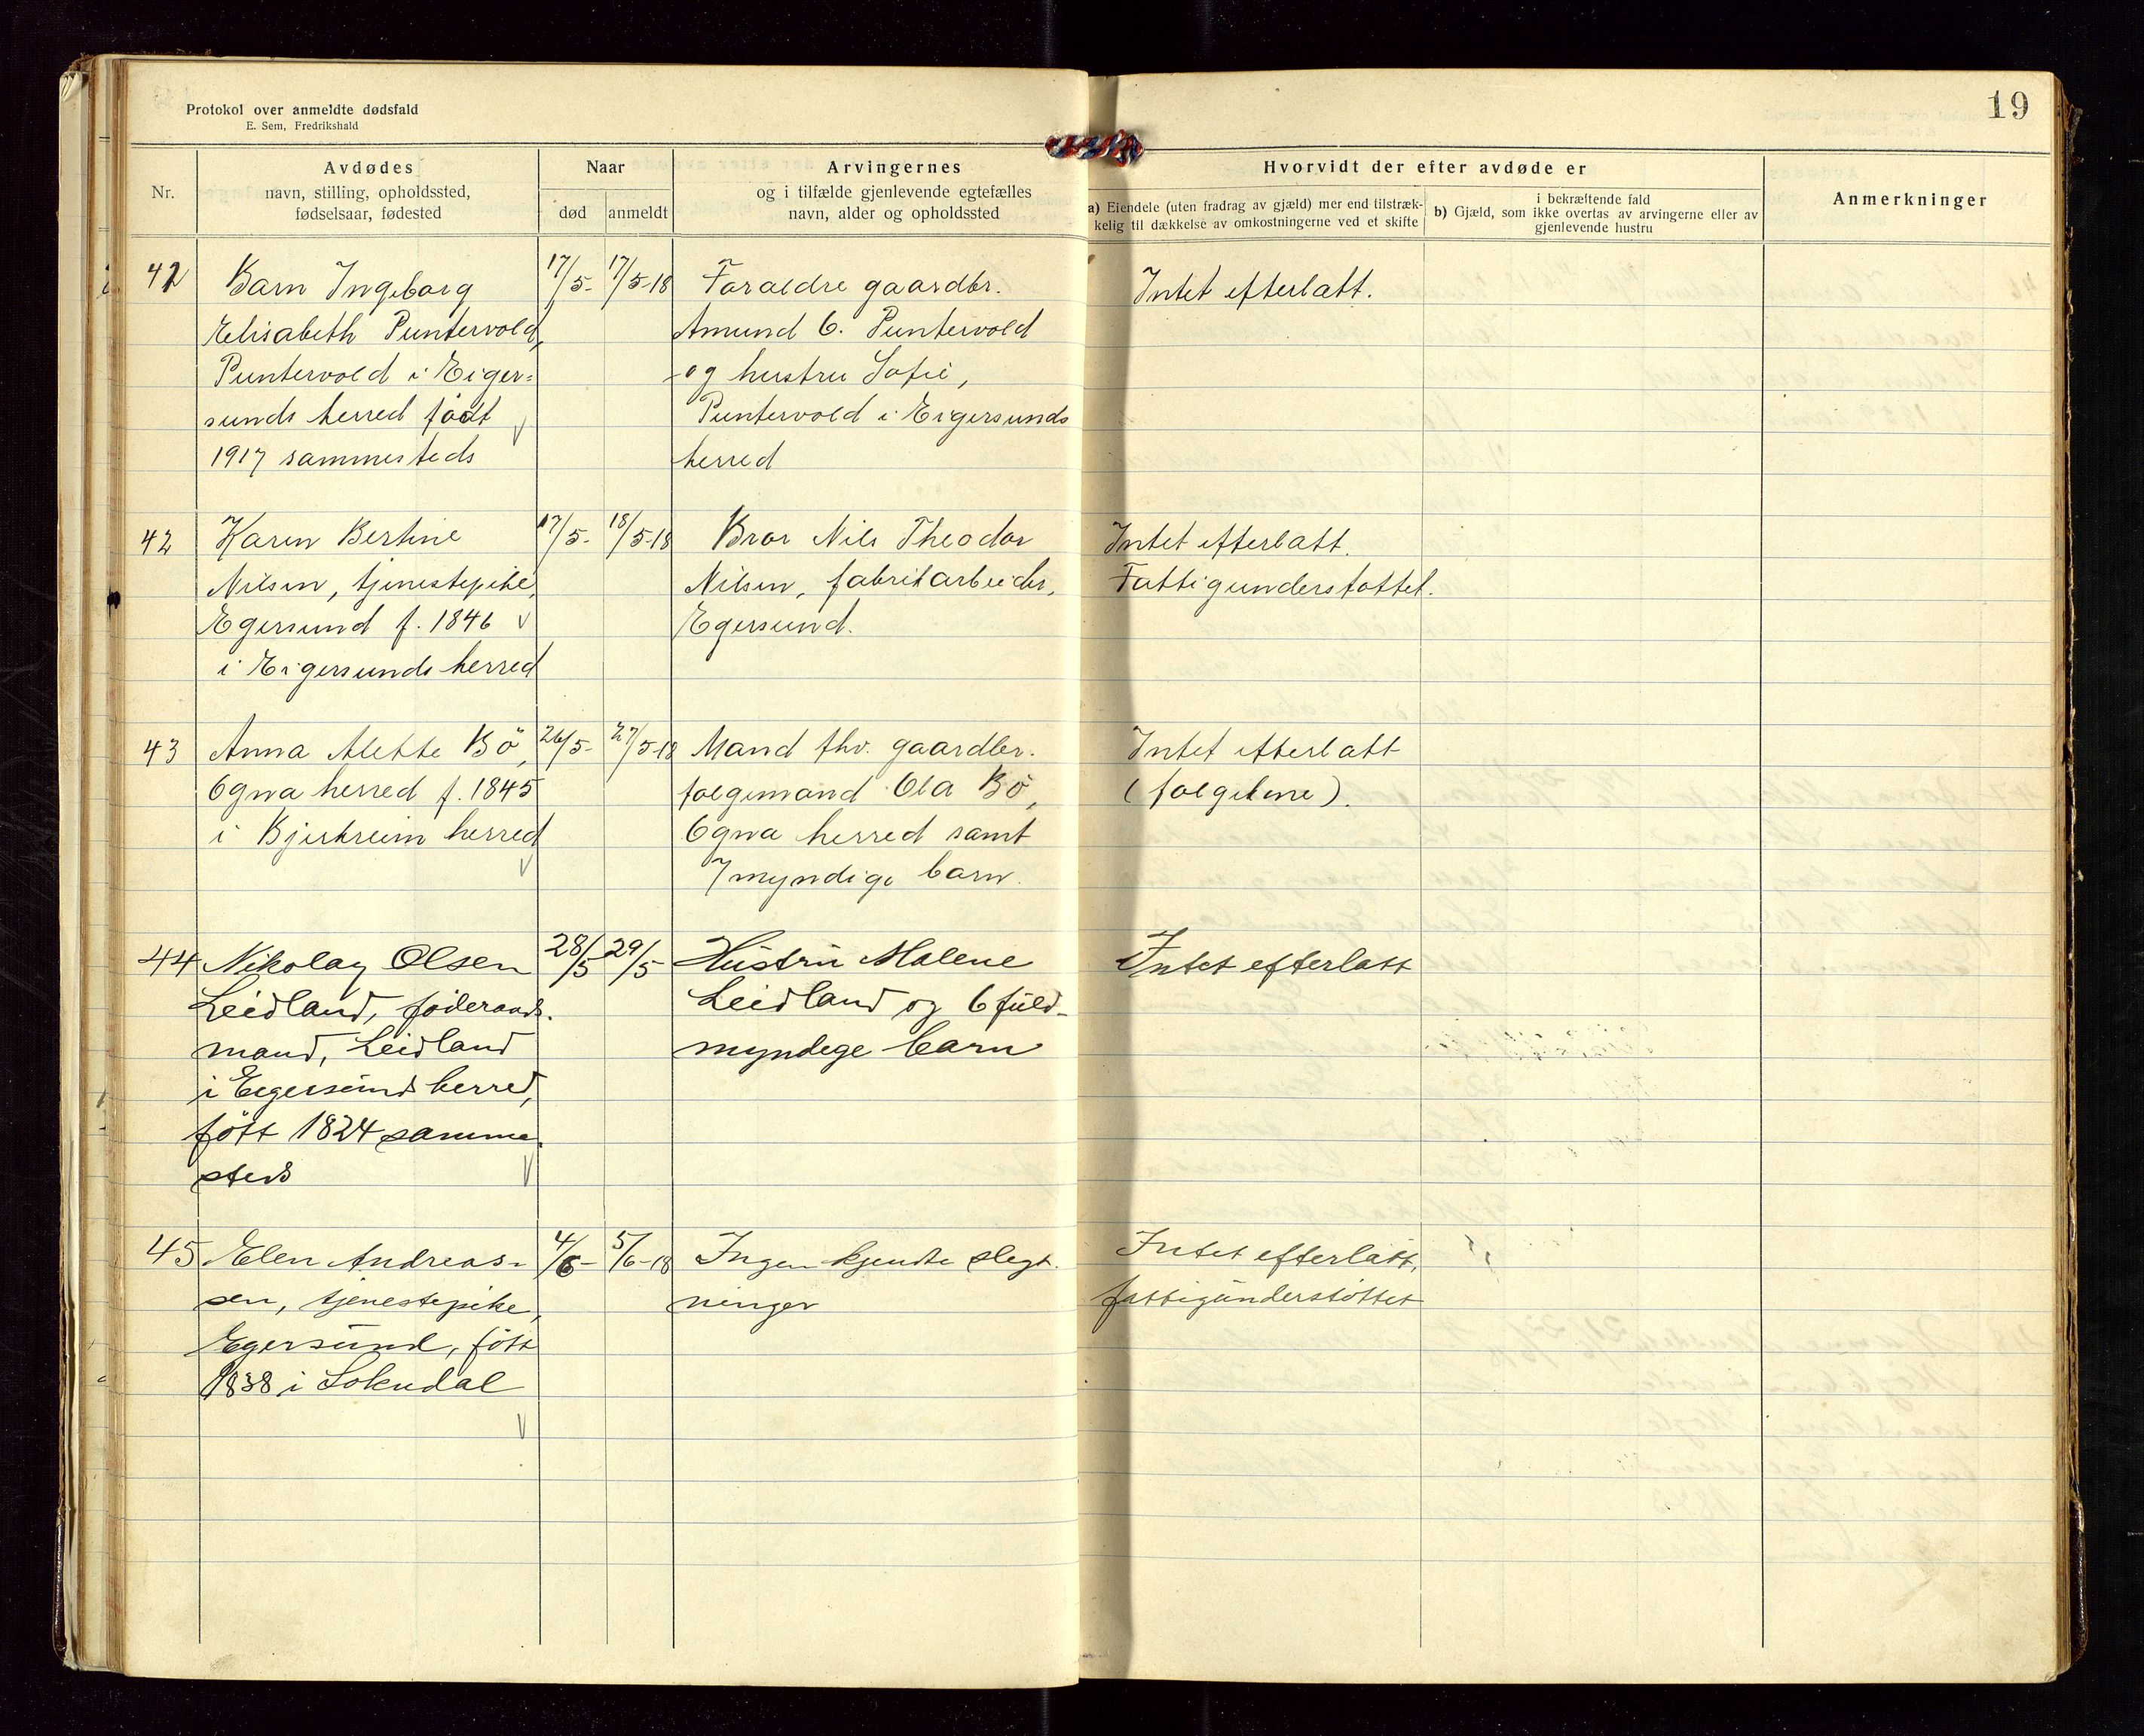 Protokol over anmeldte dødsfald
E. Sem, Fredrikshald
19
Nr.
Avdødes
navn, stilling, opholdssted,
fødselsaar, fødested
Naar
død
anmeldt
Arvingernes
og i tilfælde gjenlevende egtefælles
navn, alder og opholdssted
Hvorvidt der efter avdøde er
a) Eiendele (uten fradrag av gjæld) mer end tilstræk-
kelig til dækkelse av omkostningerne ved et skifte
i bekræftende fald
b) Gjæld, som ikke overtas av arvingerne eller av
gjenlevende hustru
Anmerkninger
Barn Ingeborg
Elisabeth Puntervold,
Puntervold i Eiger=
sunds herred født
1917 sammesteds
17/5-
17/5-18
Foraldre gaardbr.
Amund O. Puntervold
og hustru Sofie,
Puntervold i Eigersunds
herred
Intet efterlatt.
42
Karen Bertine
Nilsen, tjenestepike,
Egersund f. 1846
i Eigersunds herred
17/5-
18/5-18
Bror Nils Theodor
Nilsen, fabrikarbeider,
Egersund.
Intet efterlatt.
Fattigunderstøttet.
43
Anna Alette Bö,
Ogna herred f. 1845
i Bjerkreim herred
26/5-
27/5-18
Mand fhv. gaardbr.
følgemand Ola Bö,
Ogna herred samt
7 myndige barn.
Intet efterlatt
(følgekone).
44
Nikolay Olsen
Leidland, föderaads-
mand, Leidland
i Eigersunds herred,
födt 1824 samme-
steds
28/5
29/5
Hustru Malene
Leidland og 6 fuld-
myndige barn
Intet efterlatt
45
Elen Andreas-
sen, tjenestepike,
Egersund, födt
1838 i Sokndal
4/6-
5/6-18
Ingen kjendte slegt-
ninger
Intet efterlatt,
fattigunderstöttet